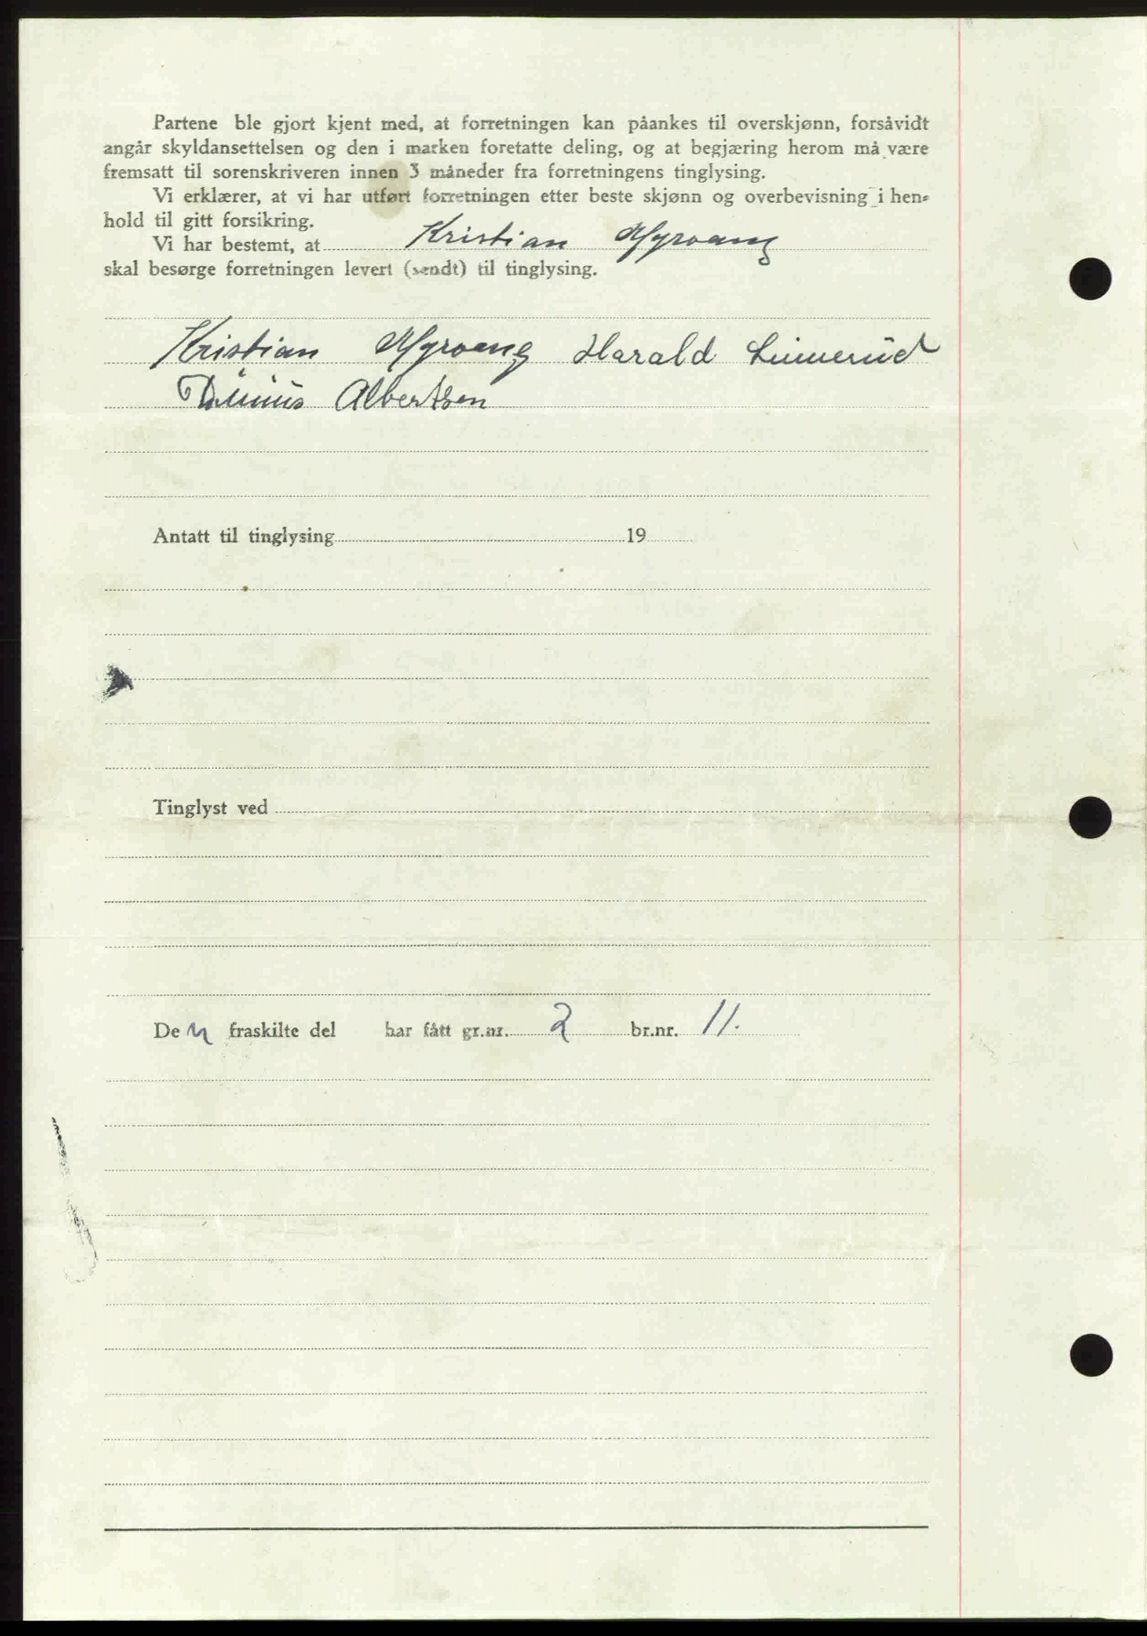 Partene ble gjort kjent med, at forretningen kan påankes til overskjønn, forsåvidt
angår skyldansettelsen og den i marken foretatte deling, og at begjæring herom må være
fremsatt til sorenskriveren innen 3 måneder fra forretningens tinglysing.
Vi erklærer, at vi har utført forretningen etter beste skjønn og overbevisning i hen-
hold til gitt forsikring.
Vi har bestemt, at Kristian Myrvang
skal besørge forretningen levert (sendt) til tinglysing.
Kristian Myrvang Harald Limerud
Albertsen
Antatt til tinglysing 19
Tinglyst ved
De n fraskilte del har fått gr.nr. 2 br.nr. 11.